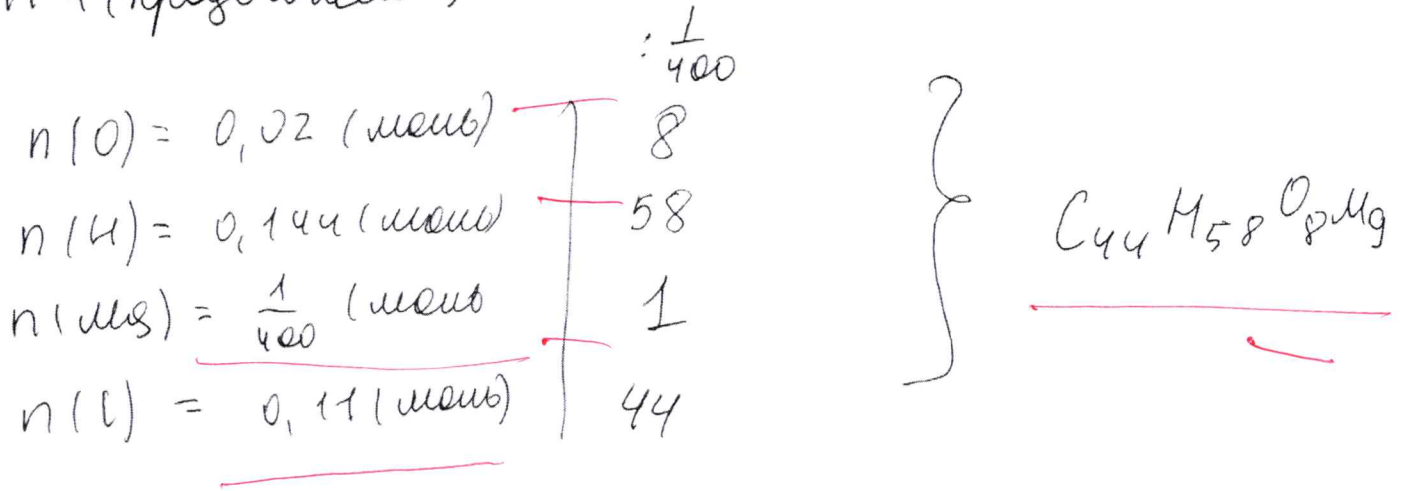 : 1/400
n(O) = 0,02 (моль) 8
n(H) = 0,144 (моль) 58
n(Mg) = 1/400 (моль 1
n(C) = 0,11 (моль) 44
C₄₄H₅₈O₈Mg